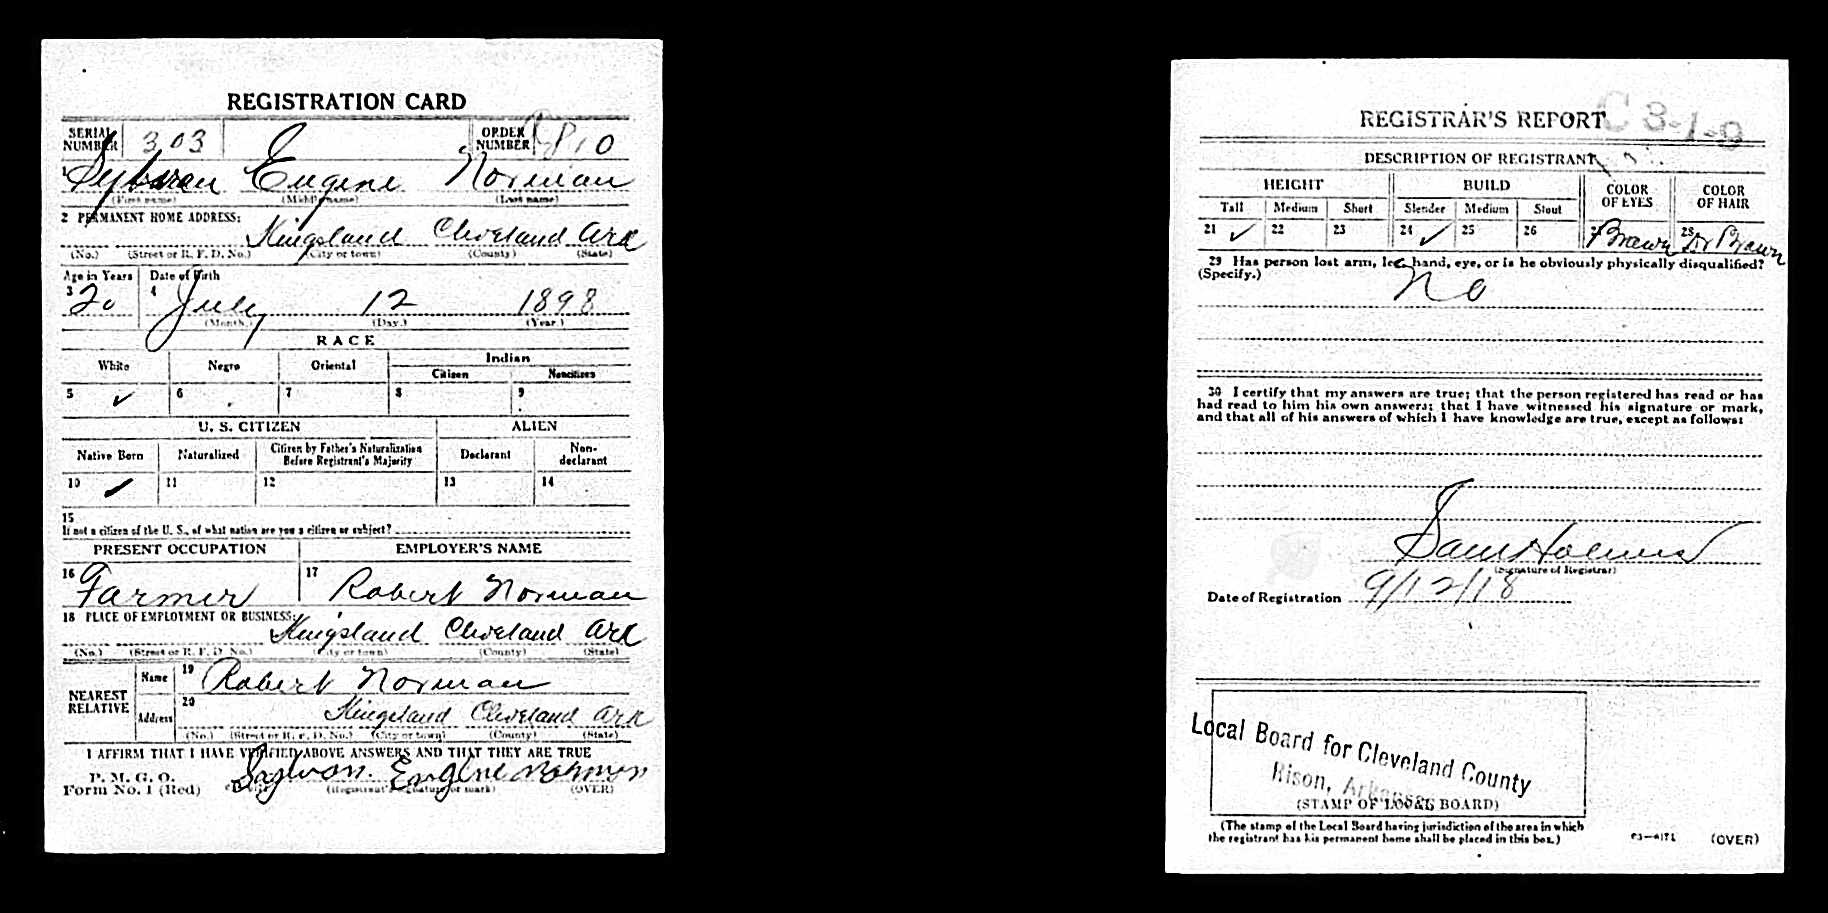 REGISTRATION CARD
SERIAL NUMBER 303 ORDER NUMBER 810
1 Eugene Norman
(First name) (Middle name) (Last name)
2 PERMANENT HOME ADDRESS:
Kingsland Cleveland Ark
(No.) (Street or R. F. D. No.) (City or town) (County) (State)
Age in Years Date of Birth
3 20 4 July 12 1898
(Month.) (Day.) (Year.)
RACE
White Negro Oriental Indian
Citizen Noncitizen
5 ✓ 6 7 8 9
U. S. CITIZEN ALIEN
Native Born Naturalized Citizen by Father's Naturalization Before Registrant's Majority Declarant Non-declarant
10 ✓ 11 12 13 14
15
If not a citizen of the U. S., of what nation are you a citizen or subject?
PRESENT OCCUPATION EMPLOYER'S NAME
16 Farmer 17 Robert Norman
18 PLACE OF EMPLOYMENT OR BUSINESS:
Kingsland Cleveland Ark
(No.) (Street or R. F. D. No.) (City or town) (County) (State)
NEAREST RELATIVE Name 19 Robert Norman
Address 20 Kingsland Cleveland Ark
(No.) (Street or R. F. D. No.) (City or town) (County) (State)
I AFFIRM THAT I HAVE VERIFIED ABOVE ANSWERS AND THAT THEY ARE TRUE
P. M. G. O.
Form No. 1 (Red) Eugene Norman
(Registrant's signature or mark) (OVER)
REGISTRAR'S REPORT C 3-1-9
DESCRIPTION OF REGISTRANT
HEIGHT BUILD COLOR OF EYES COLOR OF HAIR
Tall Medium Short Slender Medium Stout
21 ✓ 22 23 24 ✓ 25 26 27 Brown 28 Dr Brown
29 Has person lost arm, leg, hand, eye, or is he obviously physically disqualified?
(Specify.) No
30 I certify that my answers are true; that the person registered has read or has
had read to him his own answers; that I have witnessed his signature or mark,
and that all of his answers of which I have knowledge are true, except as follows:
Sam Holmes
(Signature of Registrar)
Date of Registration 9/12/18
Local Board for Cleveland County
Rison, Arkansas
(STAMP OF LOCAL BOARD)
(The stamp of the Local Board having jurisdiction of the area in which
the registrant has his permanent home shall be placed in this box.)
03—6171 (OVER)